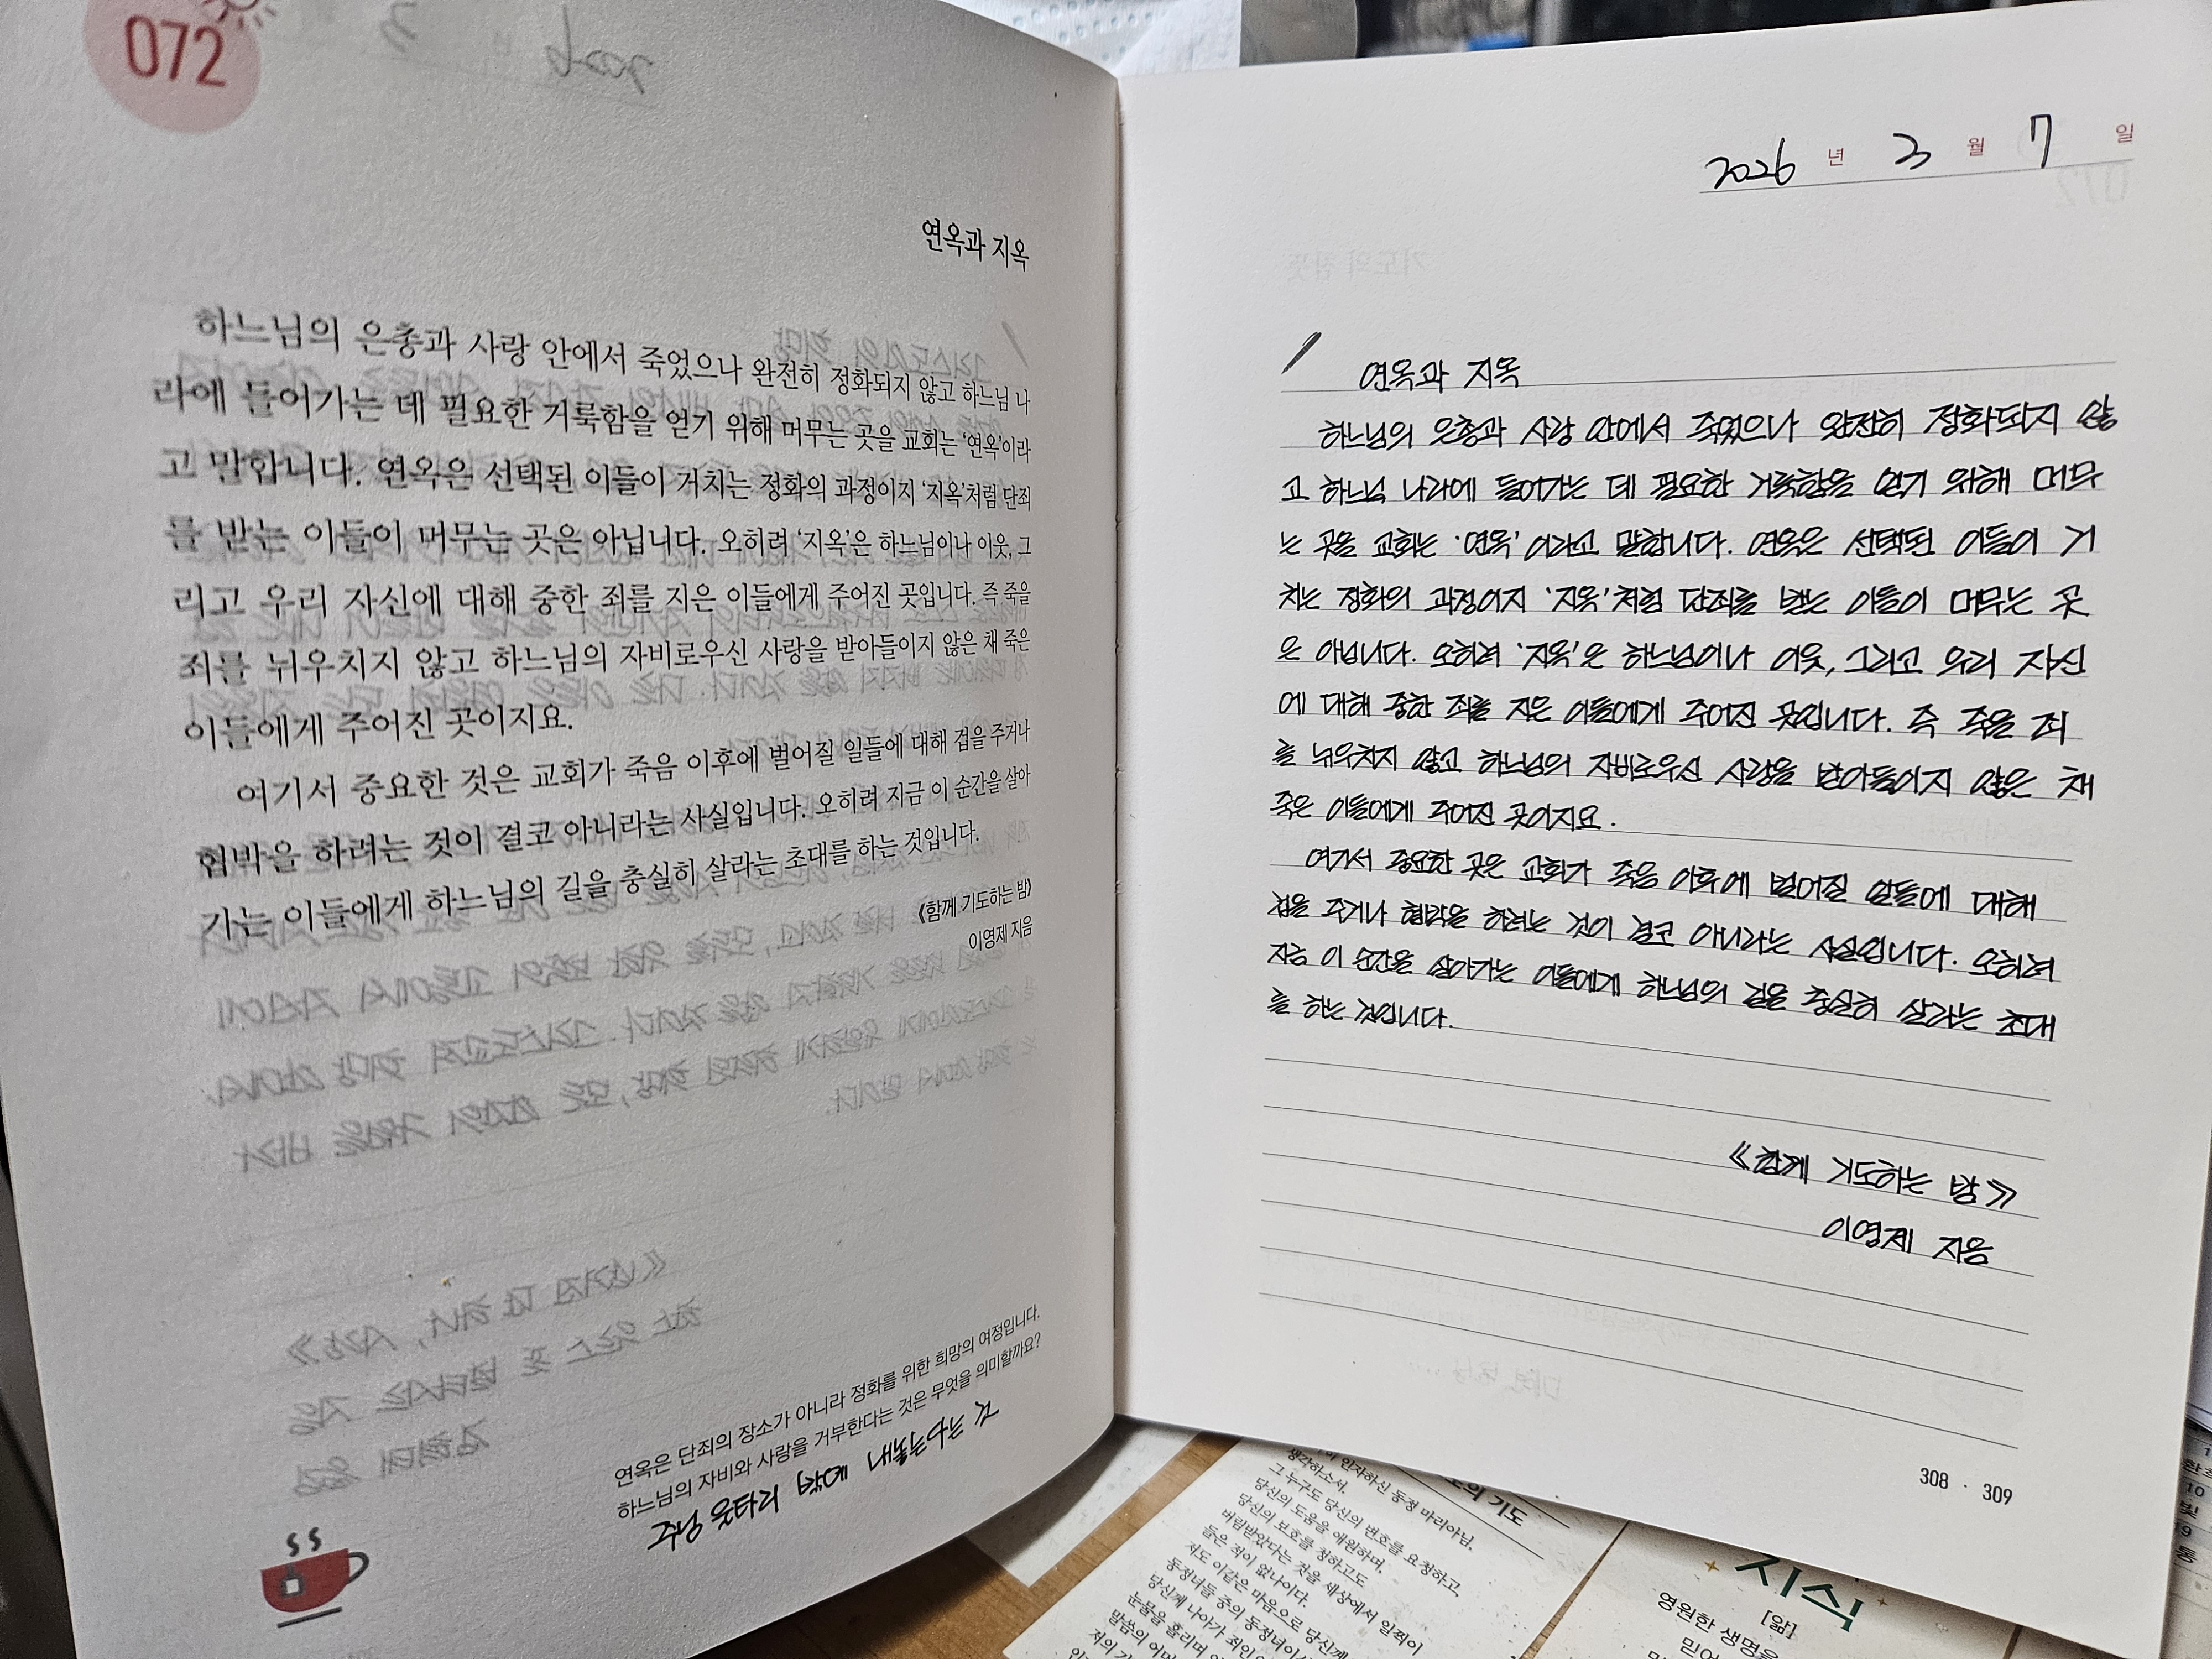 072
연옥과 지옥
하느님의 은총과 사랑 안에서 죽었으나 완전히 정화되지 않고 하느님 나
라에 들어가는 데 필요한 거룩함을 얻기 위해 머무는 곳을 교회는 ‘연옥’이라
고 말합니다. 연옥은 선택된 이들이 거치는 정화의 과정이지 ‘지옥’처럼 단죄
를 받는 이들이 머무는 곳은 아닙니다. 오히려 ‘지옥’은 하느님이나 이웃, 그
리고 우리 자신에 대해 중한 죄를 지은 이들에게 주어진 곳입니다. 즉 죽을
죄를 뉘우치지 않고 하느님의 자비로우신 사랑을 받아들이지 않은 채 죽은
이들에게 주어진 곳이지요.
여기서 중요한 것은 교회가 죽음 이후에 벌어질 일들에 대해 겁을 주거나
협박을 하려는 것이 결코 아니라는 사실입니다. 오히려 지금 이 순간을 살아
가는 이들에게 하느님의 길을 충실히 살라는 초대를 하는 것입니다.
《함께 기도하는 밤》
이영제 지음
연옥은 단죄의 장소가 아니라 정화를 위한 희망의 여정입니다.
하느님의 자비와 사랑을 거부한다는 것은 무엇을 의미할까요?
2026 년 3 월 7 일
연옥과 지옥
하느님의 은총과 사랑 안에서 죽었으나 완전히 정화되지 않
고 하느님 나라에 들어가는 데 필요한 거룩함을 얻기 위해 머무
는 곳을 교회는 ‘연옥’이라고 말합니다. 연옥은 선택된 이들이 거
치는 정화의 과정이지 ‘지옥’처럼 단죄를 받는 이들이 머무는 곳
은 아닙니다. 오히려 ‘지옥’은 하느님이나 이웃, 그리고 우리 자신
에 대해 중한 죄를 지은 이들에게 주어진 곳입니다. 즉 죽을 죄
를 뉘우치지 않고 하느님의 자비로우신 사랑을 받아들이지 않은 채
죽은 이들에게 주어진 곳이지요.
여기서 중요한 곳은 교회가 죽음 이후에 벌어질 일들에 대해
겁을 주거나 협박을 하려는 것이 결코 아니라는 사실입니다. 오히려
지금 이 순간을 살아가는 이들에게 하느님의 길을 충실히 살라는 초대
를 하는 것입니다.
《함께 기도하는 밤》
이영제 지음
308 · 309
의 기도
인자하신 동정 마리아님,
생각하소서.
그 누구도 당신의 변호를 요청하고,
당신의 도움을 애원하며,
당신의 보호를 청하고도
버림받았다는 것을 세상에서 일찍이
들은 적이 없나이다.
저도 이같은 마음으로 당신께
동정녀들 중의 동정녀이신
당신께 나아가 죄인
눈물을 흘리며
말씀의 어머
저의
지식
[앎]
영원한 생명을
믿어